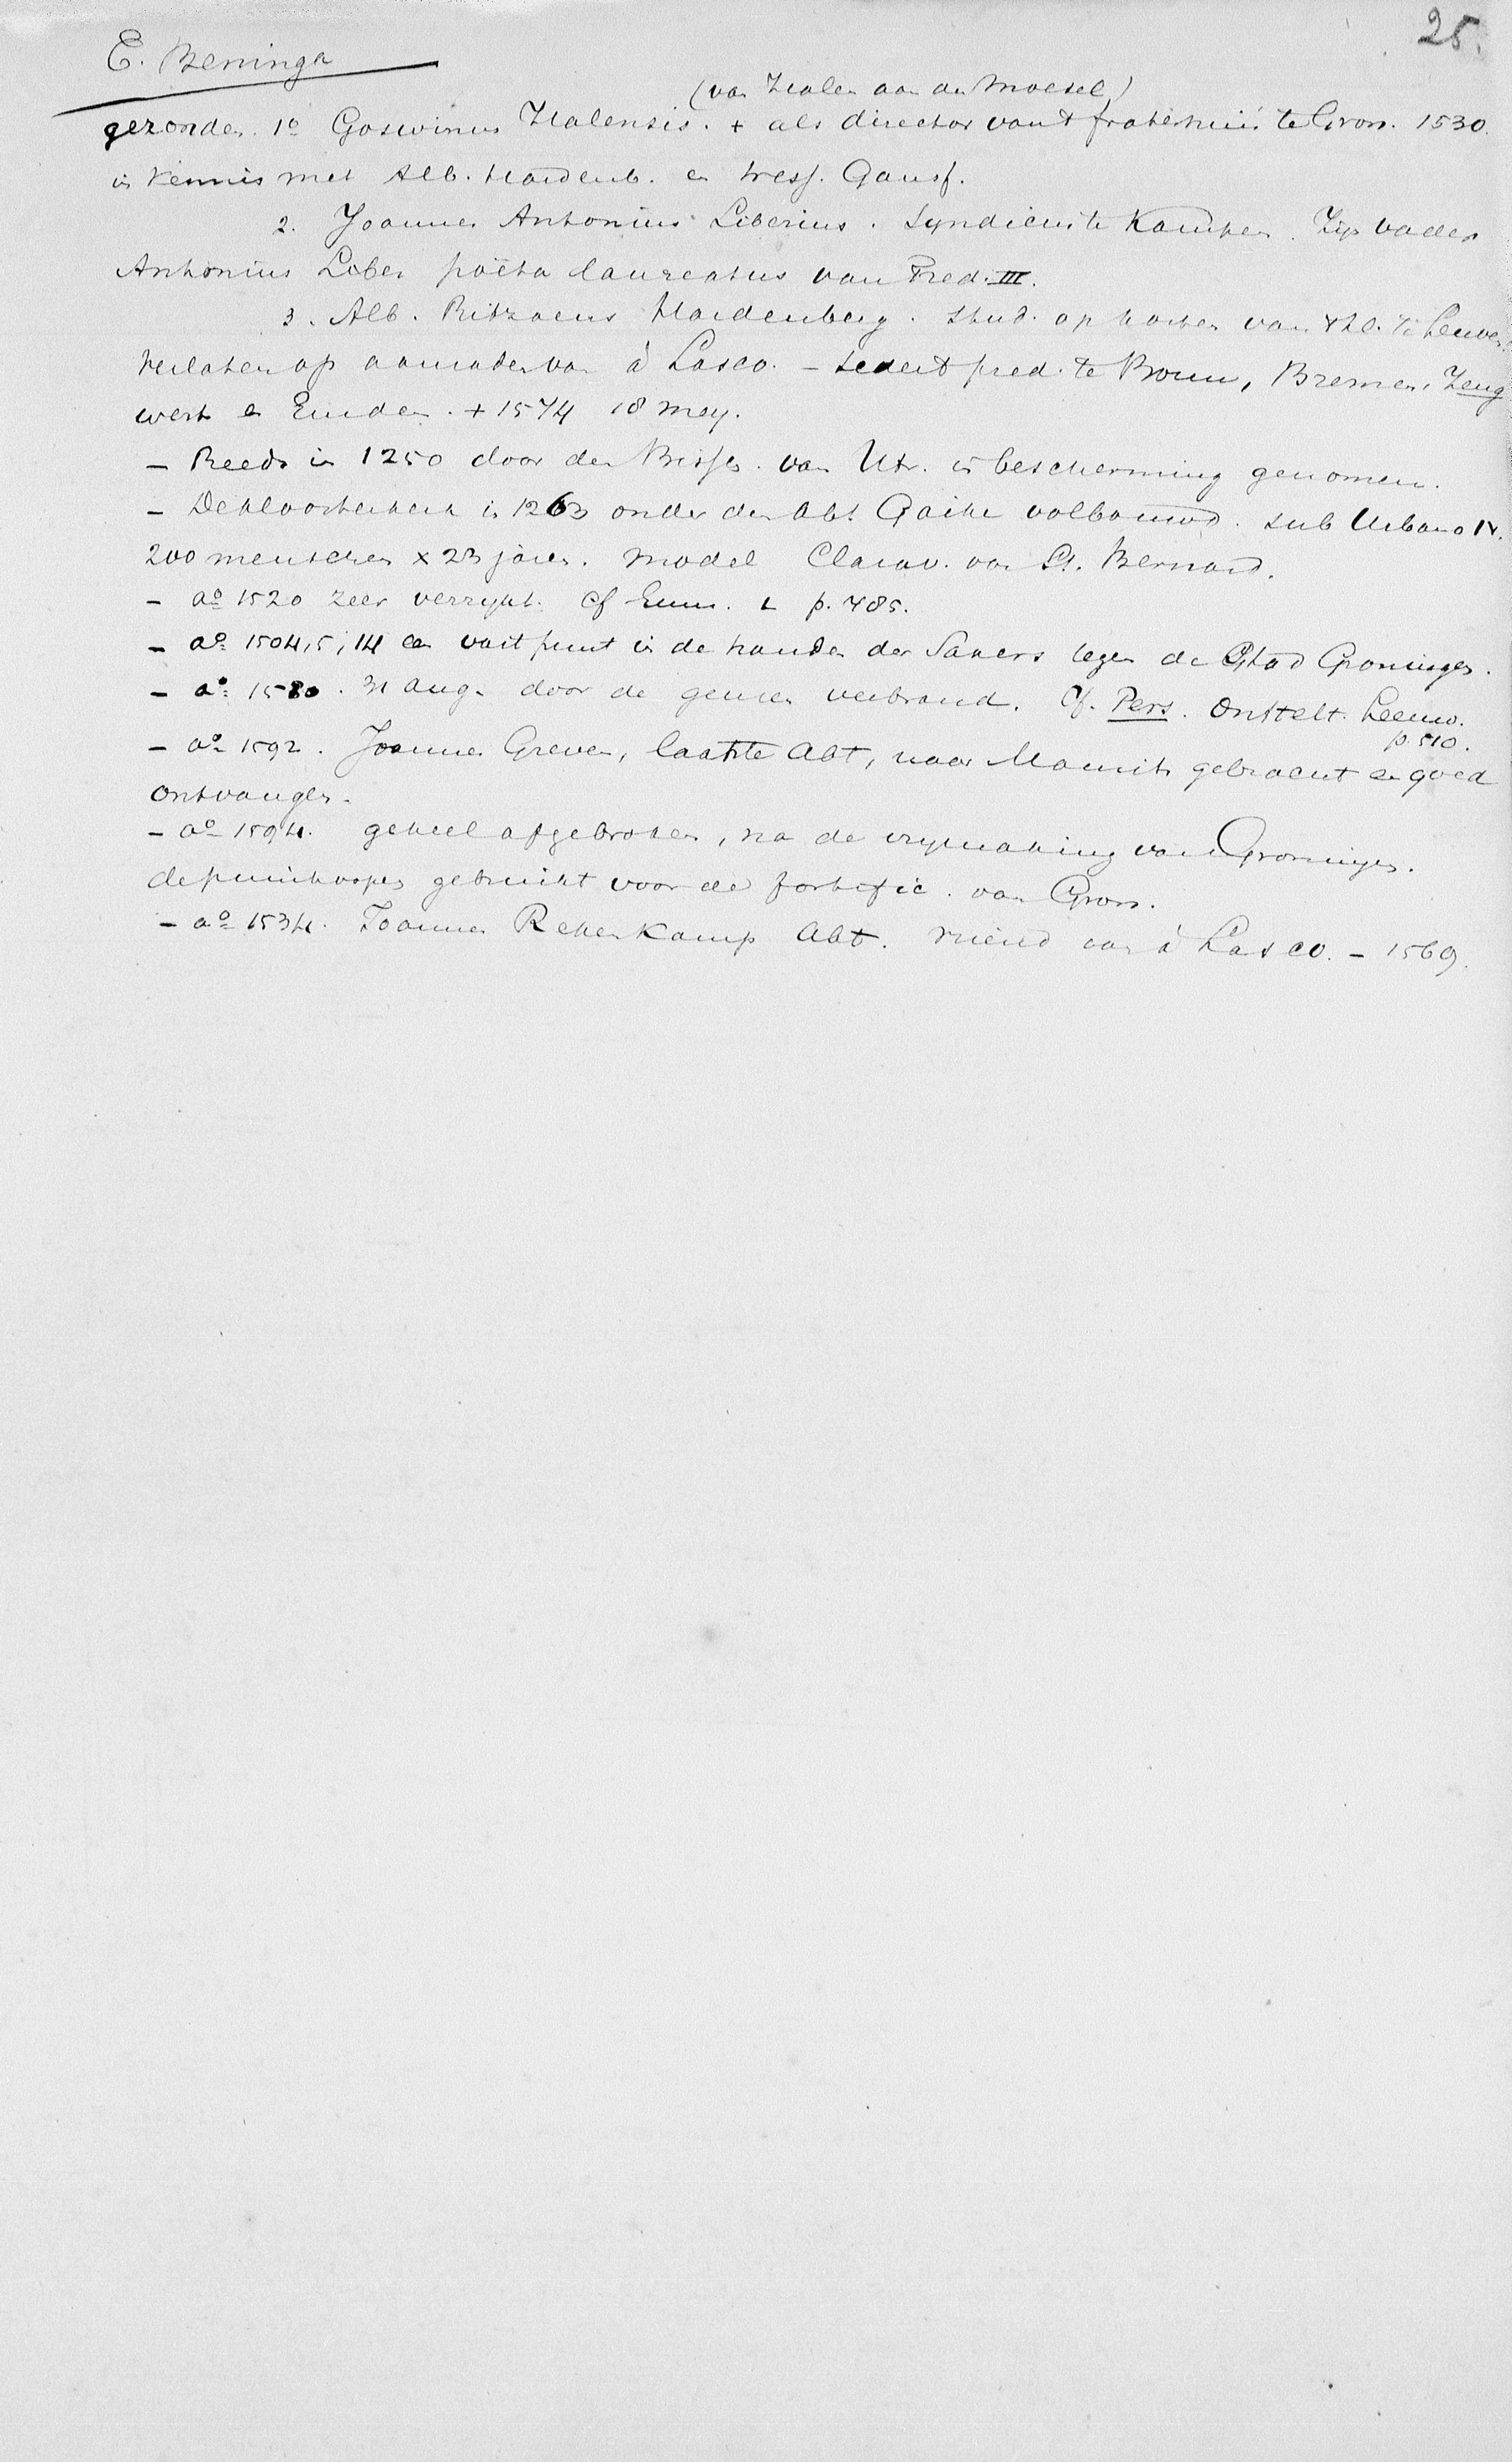 25.
E. Beninga
(van Halen aan den Moesel)
gezonden. 1o Goswinus Halensis. + als director van 't fraterhuis te Gron. 1530.
in kennis met Alb. Hardenb. en Wess. Gansf.
2. Joannes Antonius Liberius. Syndicus te Kampen. Zijn vader
Antonius Liber poëta laureatus van Fred. III.
3. Alb. Ritzaeus Hardenberg. Stud. op kosten van 't kl. te Leuven.
verlaten op aanraden van à Lasco. - sedert pred. te Bonn, Bremen, Zeng
werf en Emden. + 1574 18 Mey.
- Reeds in 1250 door den Bissch. van Utr. in bescherming genomen.
- De kloosterkerk in 1263 onder den Abt Gaike volbouwd. sub Urbano IV.
200 menschen x 23 jaren. Model Clarav. van St. Bernard.
- ao 1520 zeer verrykt. Cf Emm. L p. 785.
- ao 1504, 5, 14 een vast punt in de handen der Saxers tegen de Stad Groningen.
- ao 1580. 31 Aug. door de geusen verbrand. Cf. Pers. Onstelt. Leeuw.
p. 510.
- ao 1592. Joannes Greven, laatste Abt, naar Maurits gebracht en goed
ontvangen.
- ao 1594. geheel afgebroken, na de vrymaking van Groningen.
de puinhoopen gebruikt voor de fortific. van Gron.
- ao 1534. Joannes Rekenkamp Abt. vriend van à Lasco. - 1569.